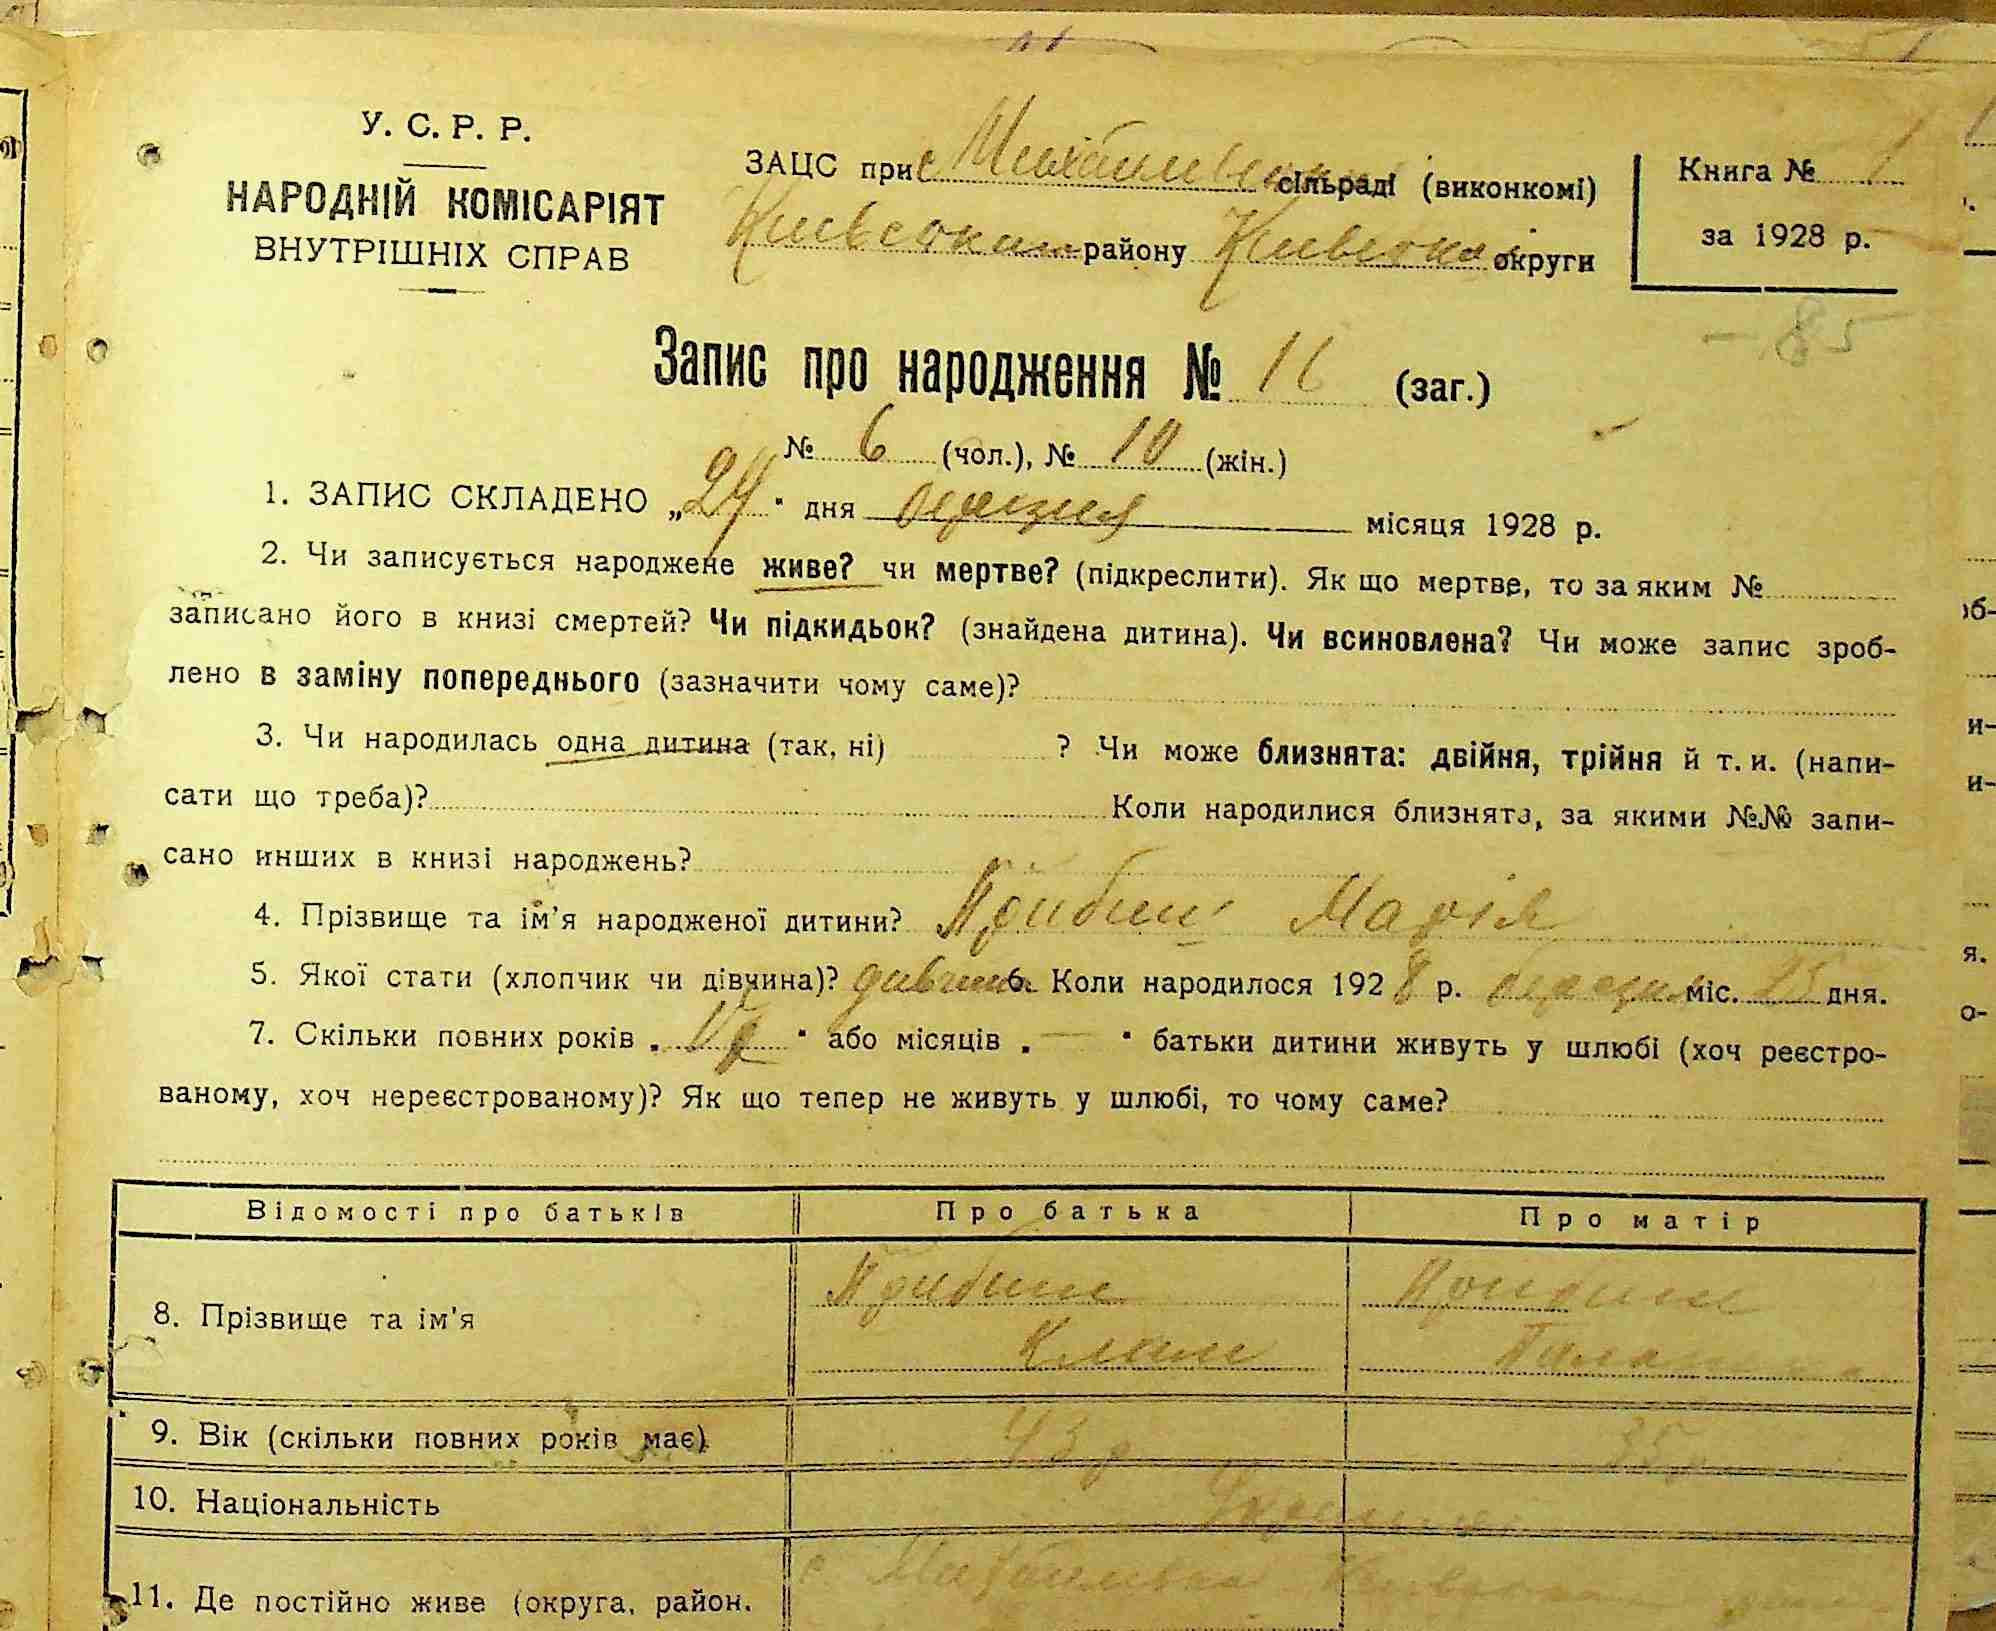 У. С. Р. Р.
НАРОДНІЙ КОМІСАРІЯТ
ВНУТРІШНІХ СПРАВ
ЗАЦС при сільраді (виконкомі)
району округи
Книга № 1
за 1928 р.
85
Запис про народження № 16 (заг.)
№ 6 (чол.), № 10 (жін.)
1. ЗАПИС СКЛАДЕНО „24" дня березня місяця 1928 р.
2. Чи записується народжене живе? чи мертве? (підкреслити). Як що мертве, то за яким №
записано його в книзі смертей? Чи підкидьок? (знайдена дитина). Чи всиновлена? Чи може запис зроб-
лено в заміну попереднього (зазначити чому саме)?
3. Чи народилась одна дитина (так, ні) ? Чи може близнята: двійня, трійня й т. и. (напи-
сати що треба)? Коли народилися близнята, за якими №№ запи-
сано инших в книзі народжень?
4. Прізвище та ім'я народженої дитини? Марія
5. Якої стати (хлопчик чи дівчина)? 6. Коли народилося 1928 р. березня міс. дня.
7. Скільки повних років „ " або місяців „ — " батьки дитини живуть у шлюбі (хоч реєстро-
ваному, хоч нереєстрованому)? Як що тепер не живуть у шлюбі, то чому саме?
Відомості про батьків Про батька Про матір
8. Прізвище та ім'я
9. Вік (скільки повних років має) 43 р 35
10. Національність
11. Де постійно живе (округа, район.